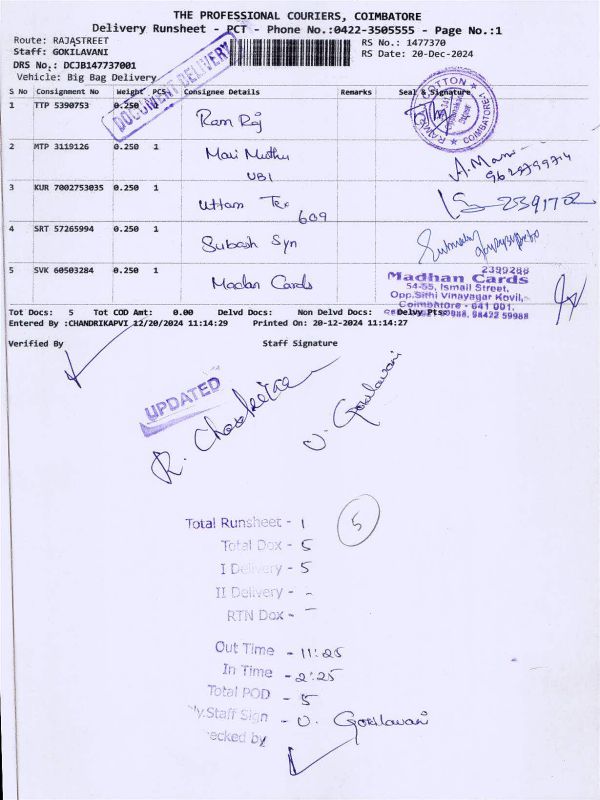 THE PROFESSIONAL COURIERS, COIMBATORE
Delivery Runsheet - PCT - Phone No.:0422-3505555 - Page No.:1
Route: RAJASTREET
RS No.: 1477370
Staff: GOKILAVANI
RS Date: 20-Dec-2024
DRS No.: DCJB147737001
Vehicle: Big Bag Delivery
DOCUMENT DELIVERY
S No Consignment No Weight PCS Consignee Details Remarks Seal & Signature
1 TTP 5390753 0.250 Ram Raj
COTTON
COIMBATORE
2 MTP 3119126 0.250 1 Mari Muthu
UBI
A. Mani
3 KUR 7002753035 0.250 1 Uttam Tex
609
239172
4 SRT 57265994 0.250 1 Subash Syn
5 SVK 60503284 0.250 1 Madan Cards
2399288
Madhan Cards
54-55, Ismail Street,
Opp.Sithi Vinayagar Kovil,
Coimbatore - 641 001.
98422 59988
Tot Docs: 5 Tot COD Amt: 0.00 Delvd Docs: Non Delvd Docs: Delvy Pts:
Entered By :CHANDRIKAPVI 12/20/2024 11:14:29 Printed On: 20-12-2024 11:14:27
Verified By Staff Signature
UPDATED
V. Gokilavani
Total Runsheet - 1
5
Total Dox - 5
I Delivery - 5
II Delivery - -
RTN Dox - -
Out Time - 11:25
In Time - 2:25
Total POD - 5
ly.Staff Sign - V. Gokilavani
ecked by